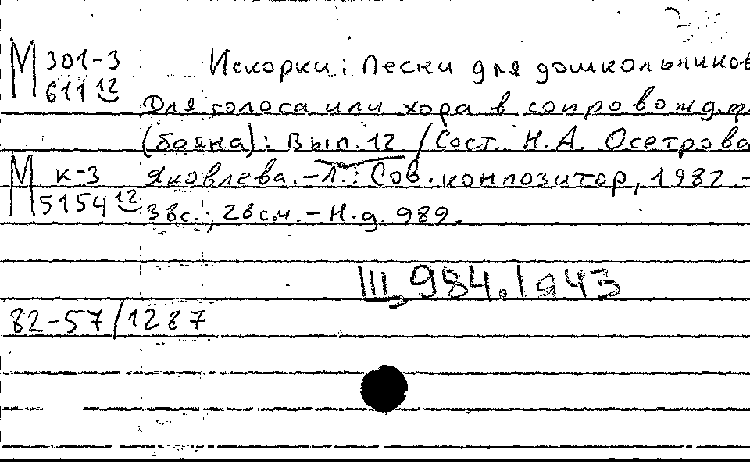 М 301-3 Искорки: Песни для дошкольников
611 12
Для голоса или хора в сопровожд. ф
(баяна): Вып. 12 / Сост. Н.А. Осетрова
М К-3 Яковлева. – Л.: Сов. композитор, 1982 –
5154 12 38с.; 28см. – Н.д. 989.
III, 984.1943
82-57/1287